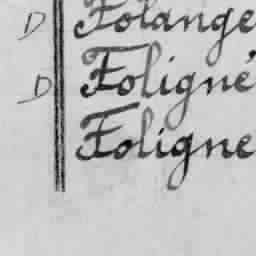 D Folange
D Foligné
Foligne